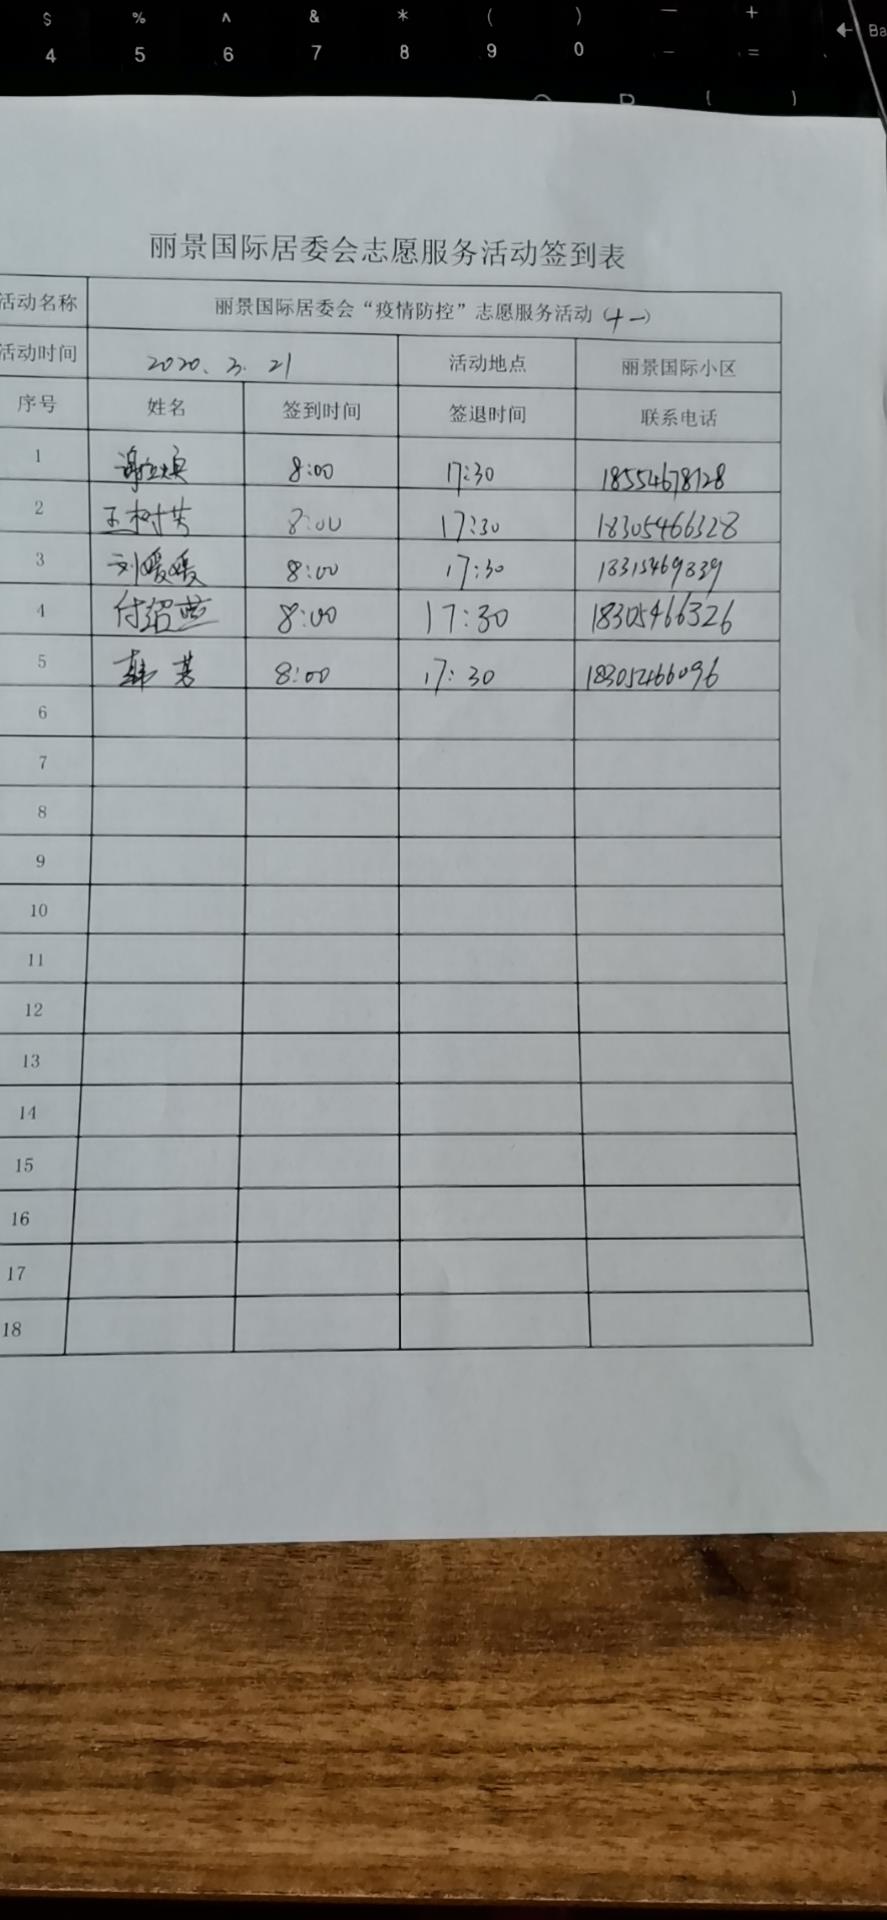 $ % ^ & * ( ) — +
4 5 6 7 8 9 0 — = Ba
丽景国际居委会志愿服务活动签到表
活动名称 丽景国际居委会“疫情防控”志愿服务活动（十一）
活动时间 2020.3.21 活动地点 丽景国际小区
序号 姓名 签到时间 签退时间 联系电话
1 8:00 17:30 18554678128
2 王树芳 8:00 17:30 18305466328
3 刘媛媛 8:00 17:30 18315469839
4 付绍燕 8:00 17:30 18305466326
5 韩芳 8:00 17:30 18305466096
6
7
8
9
10
11
12
13
14
15
16
17
18